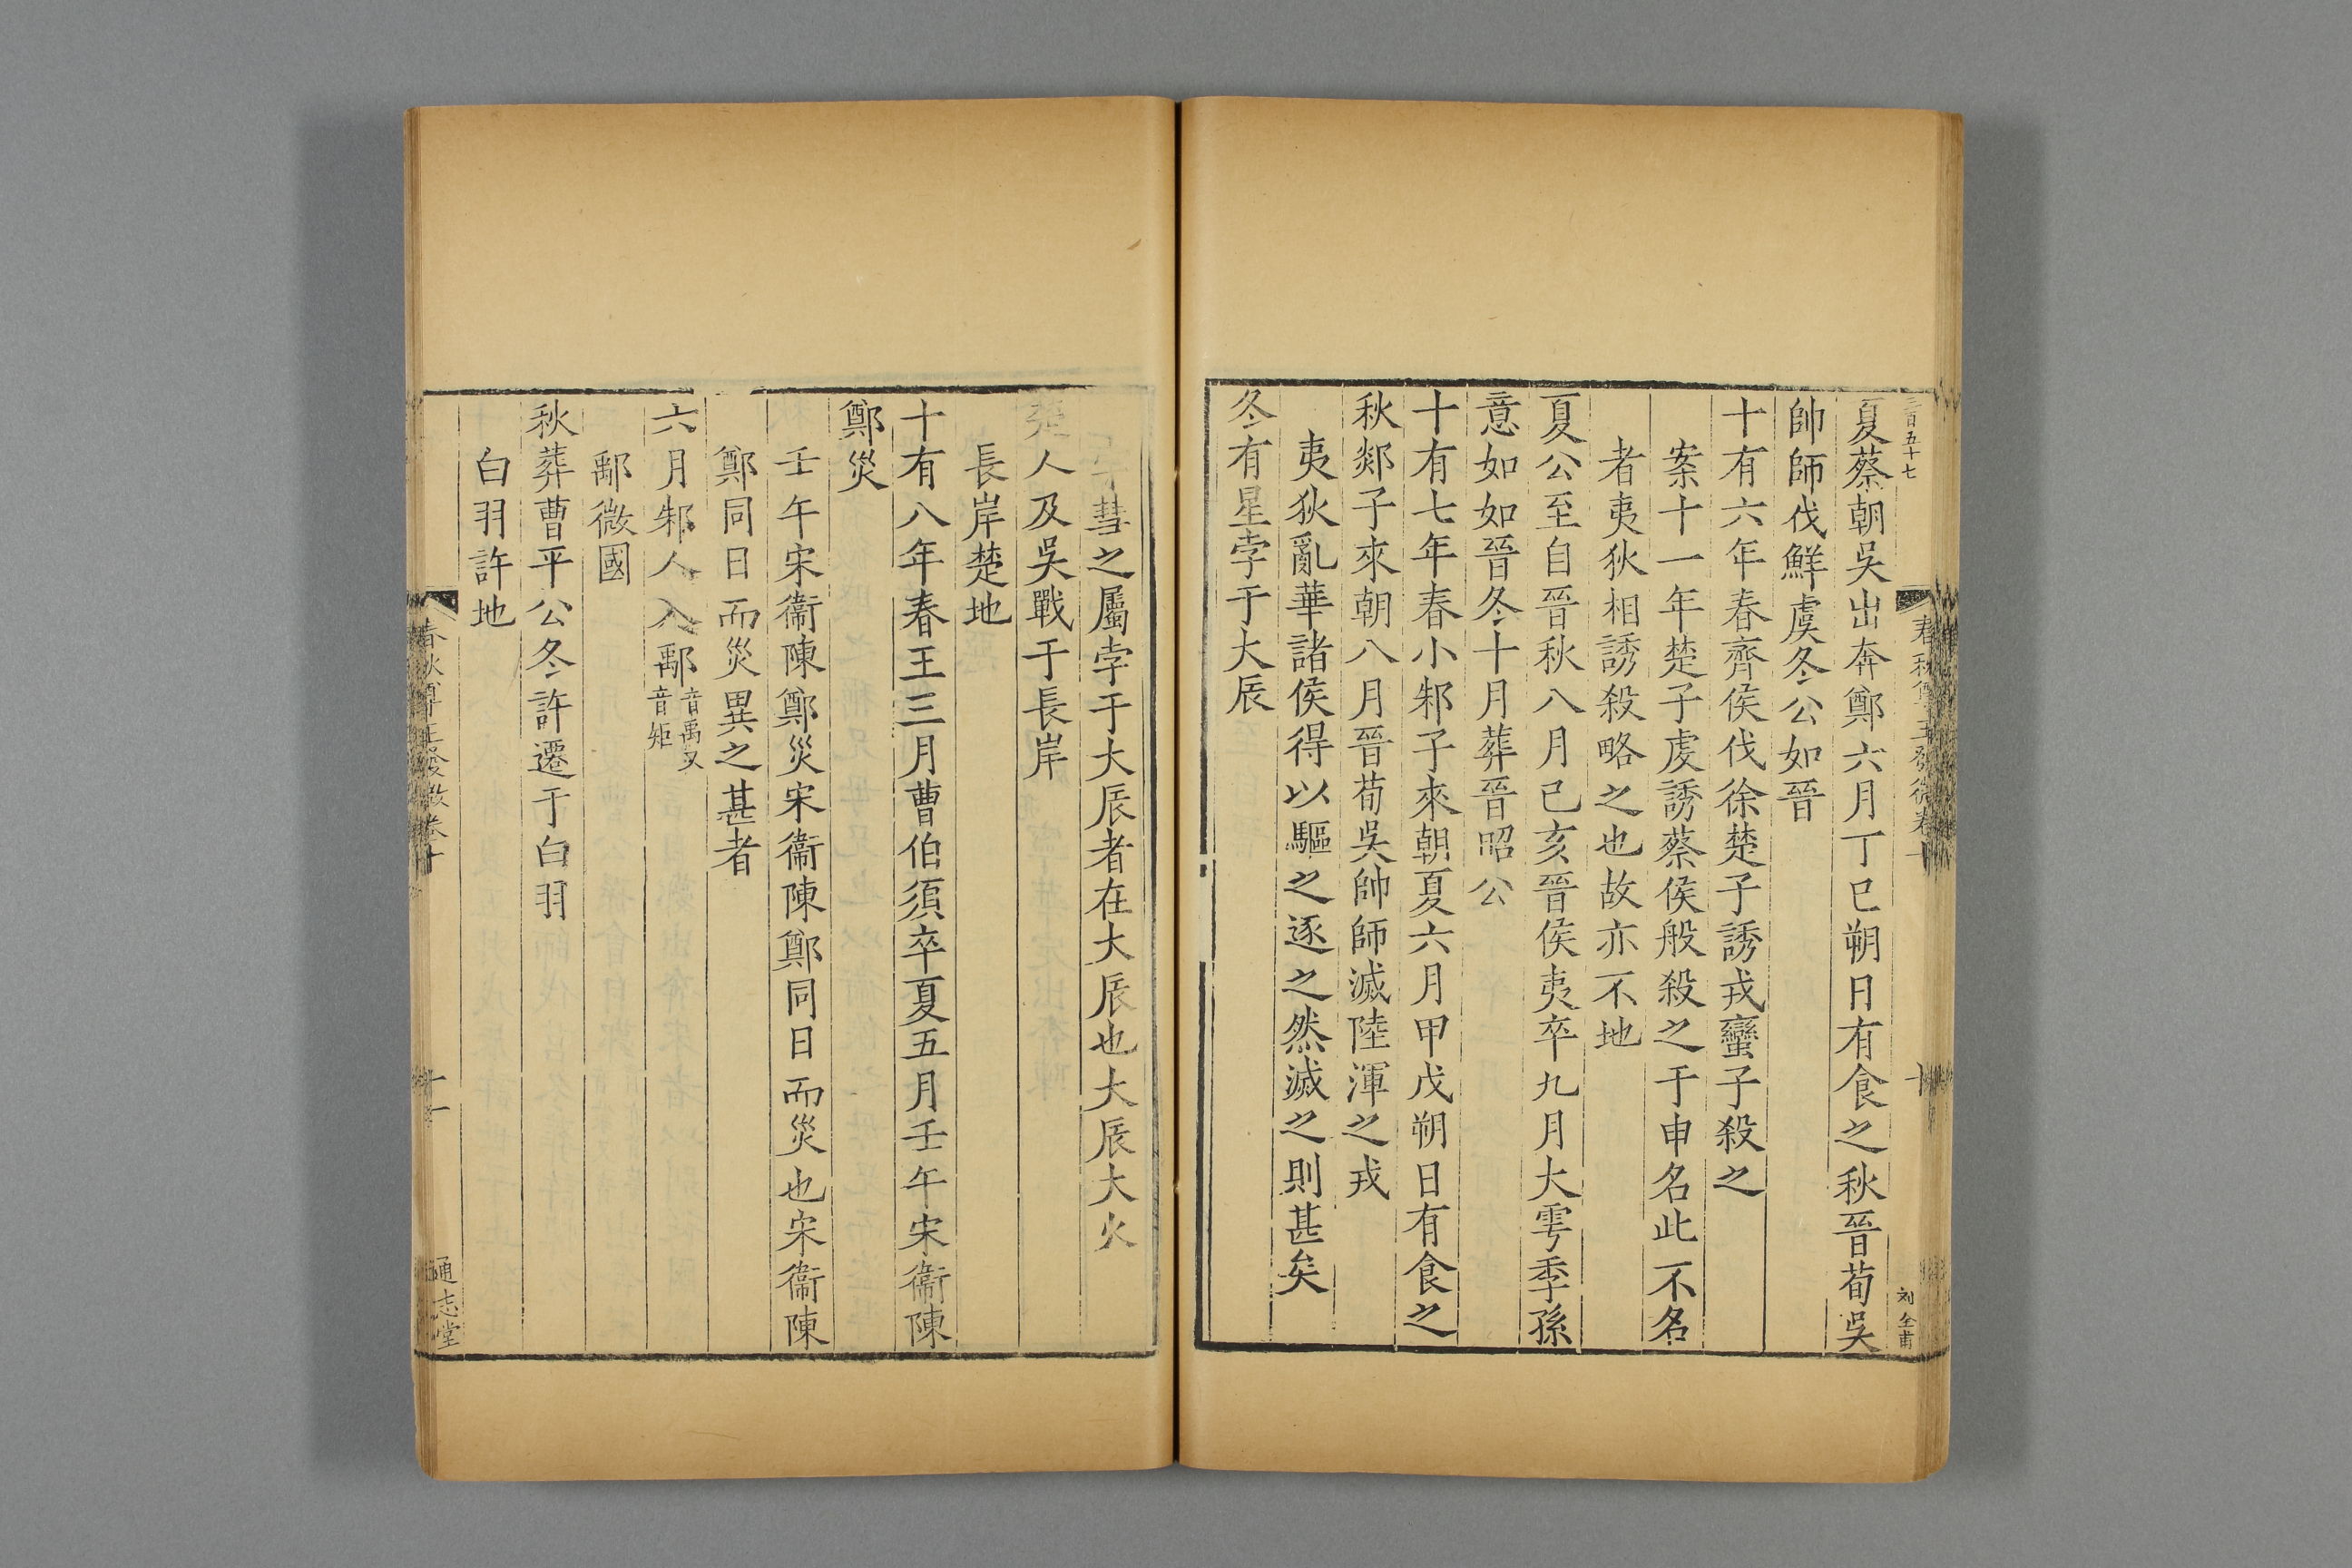 三百五十七
夏蔡朝吳出奔鄭六月丁巳朔日有食之秋晉荀吳
帥師伐鮮虞冬公如晉
十有六年春齊侯伐徐楚子誘戎蠻子殺之
案十一年楚子虔誘蔡侯般殺之于申名此不名
者夷狄相誘殺略之也故亦不地
夏公至自晉秋八月己亥晉侯夷卒九月大雩季孫
意如如晉冬十月葬晉昭公
十有七年春小邾子來朝夏六月甲戌朔日有食之
秋郯子來朝八月晉荀吳帥師滅陸渾之戎
夷狄亂華諸侯得以驅之逐之然滅之則甚矣
冬有星孛于大辰
彗之屬孛于大辰者在大辰也大辰大火
人及吳戰于長岸
長岸楚地
十有八年春王三月曹伯須卒夏五月壬午宋衞陳
鄭災
壬午宋衞陳鄭災宋衞陳鄭同日而災也宋衞陳
鄭同日而災異之甚者
六月邾人入鄅音禹又音矩
鄅微國
秋葬曹平公冬許遷于白羽
白羽許地
春秋尊王發微卷十
十一
通志堂